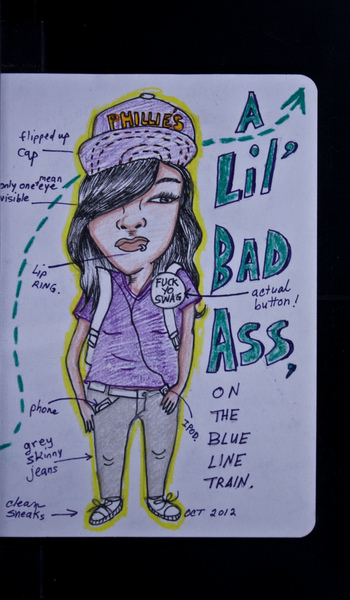 A
Lil'
BAD
ASS,
ON
THE
BLUE
LINE
TRAIN.
PHILLIES
flipped up
cap
only one mean eye
visible
LIP
RING.
FUCK
YO
SWAG
actual
button!
phone
IPOD.
grey
skinny
jeans
clean
sneaks
OCT 2012